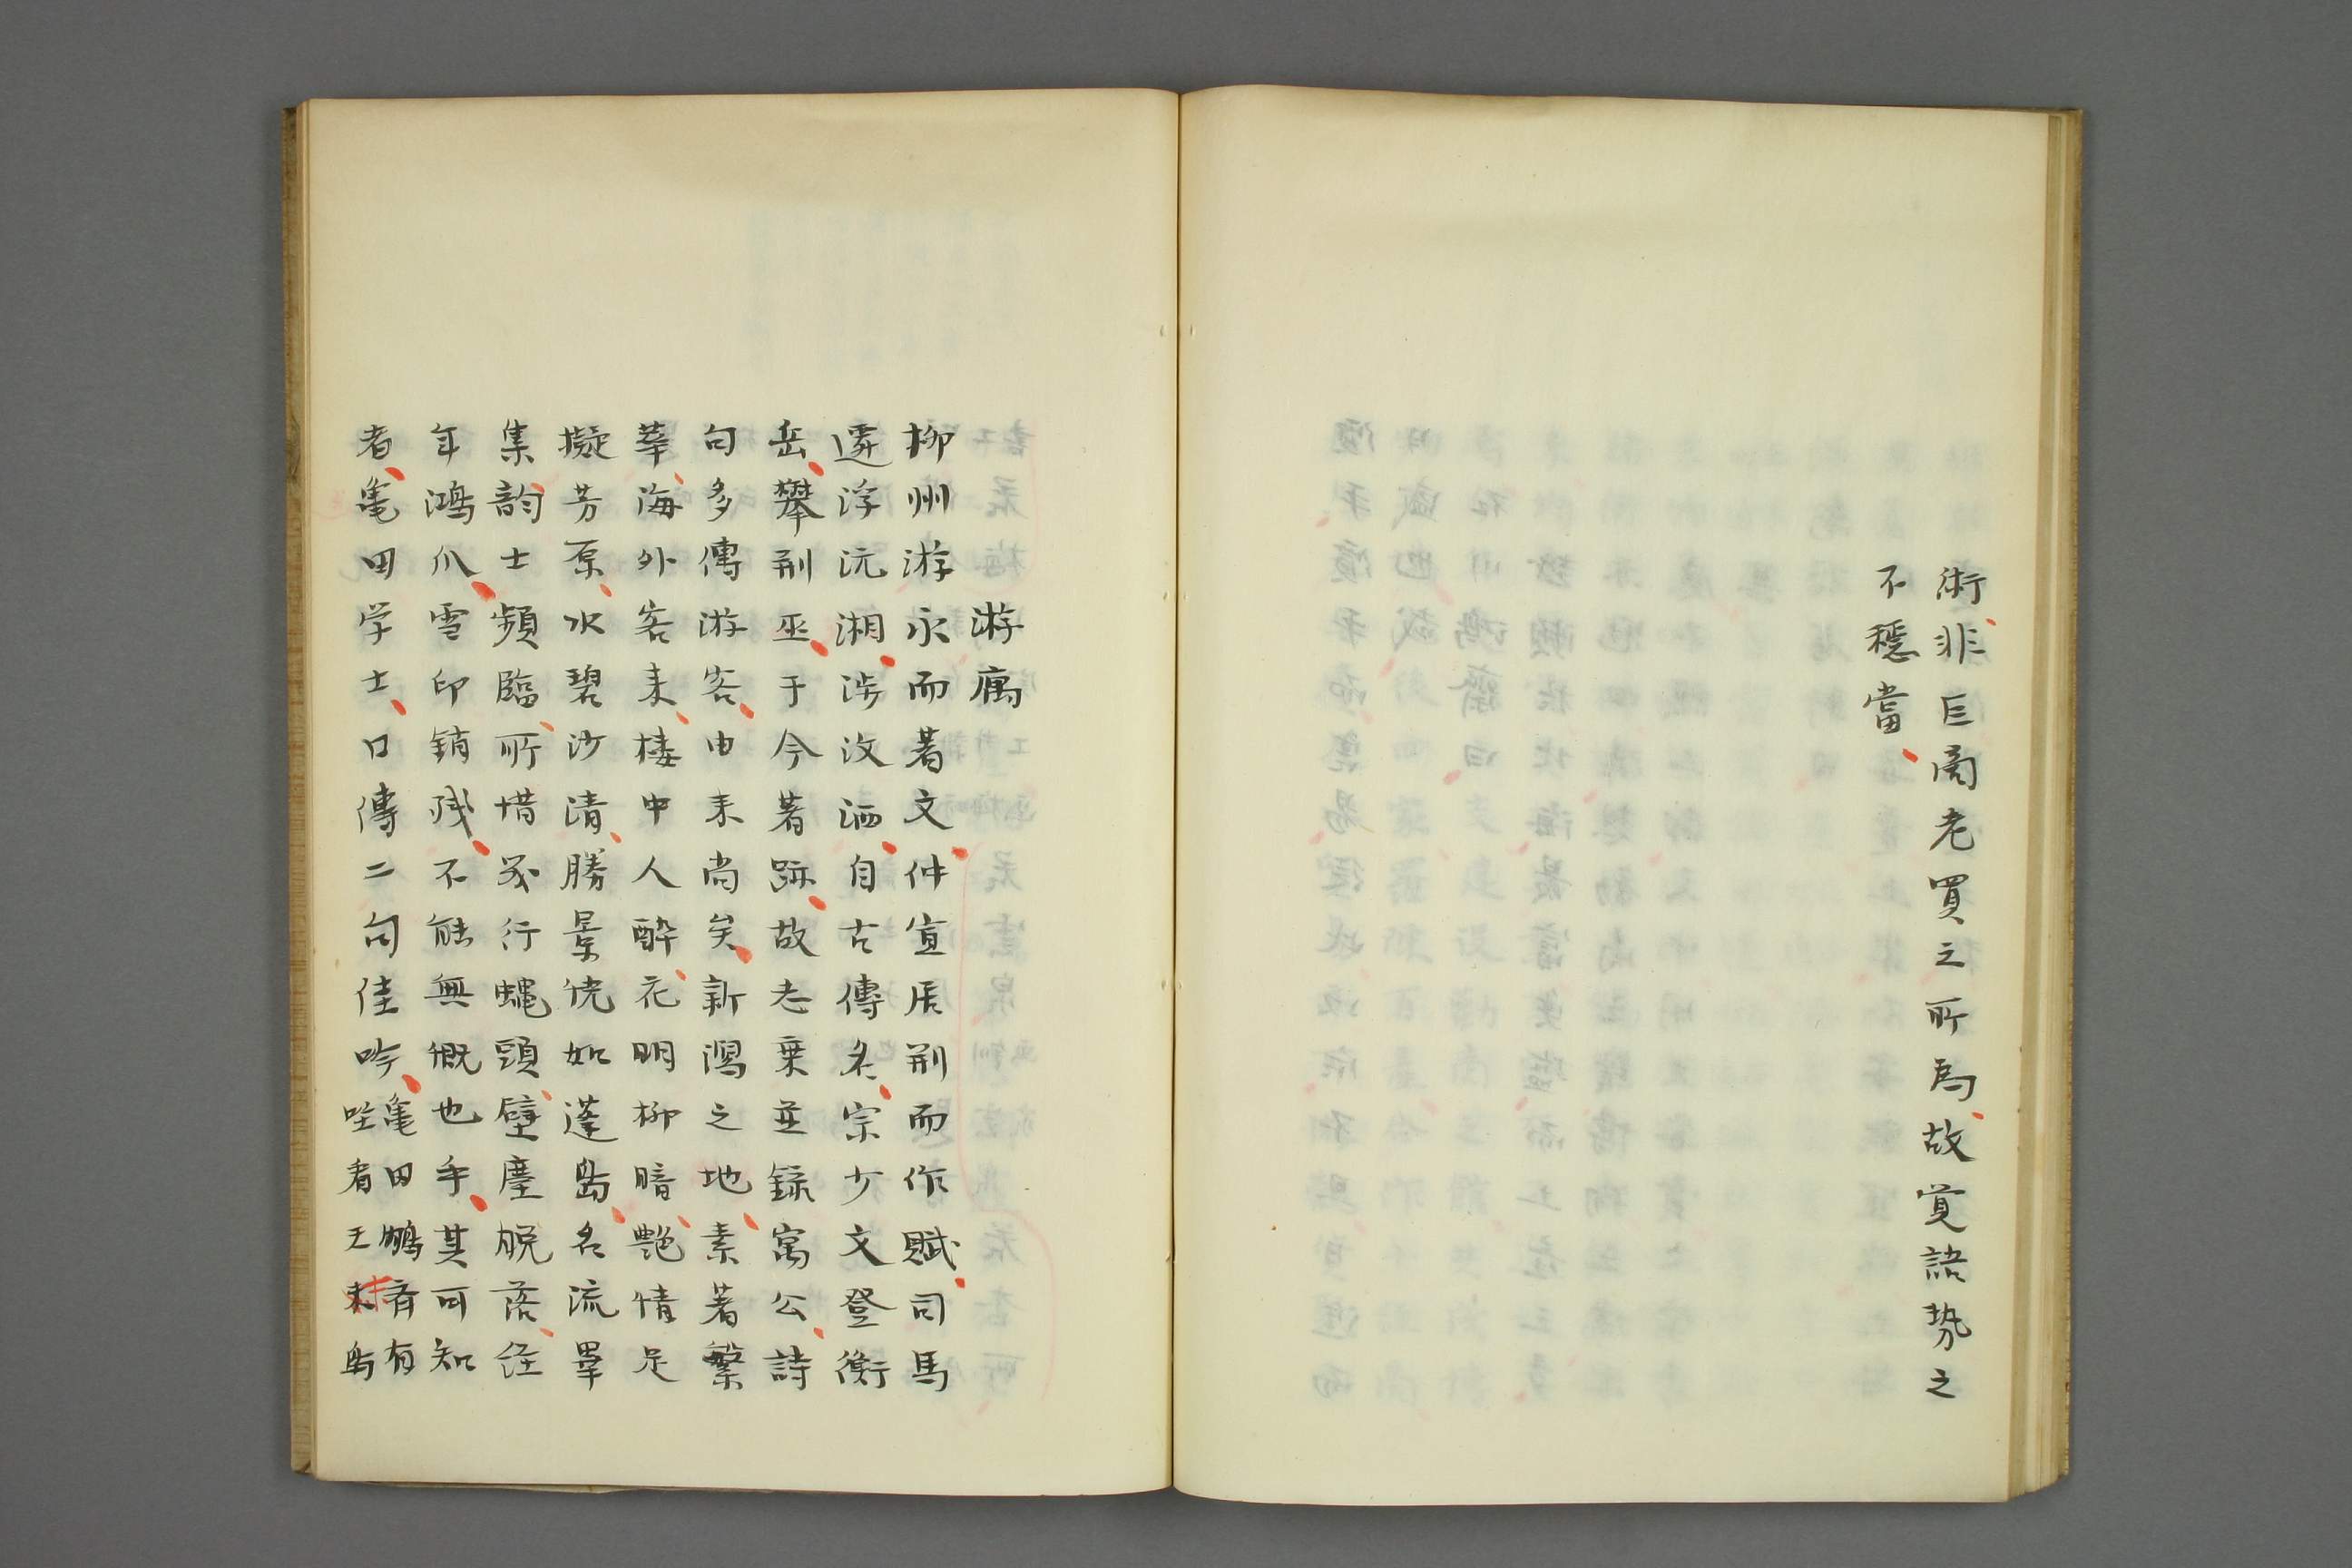 術非巨商老買之所為故覚語勢之
不穏當
游寓
柳州游永而著文仲宣居荊而作賦司馬
遷浮沅湘渉汶泗自古傳名宗少文登衡
岳攀荊巫于今著跡故志乗並錄寓公詩
句多傳游客由来尚矣新潟之地素著繁
華海外客来楼中人酔花明柳暗艶情足
擬芳原水碧沙清勝景恍如蓬島名流畢
集韵士頻臨所惜数行蠅頭壁塵脱落經
年鴻爪雪印銷残不能無慨也乎其可知
者亀田学士口傳二句佳吟亀田鵬斎有
唫看王島